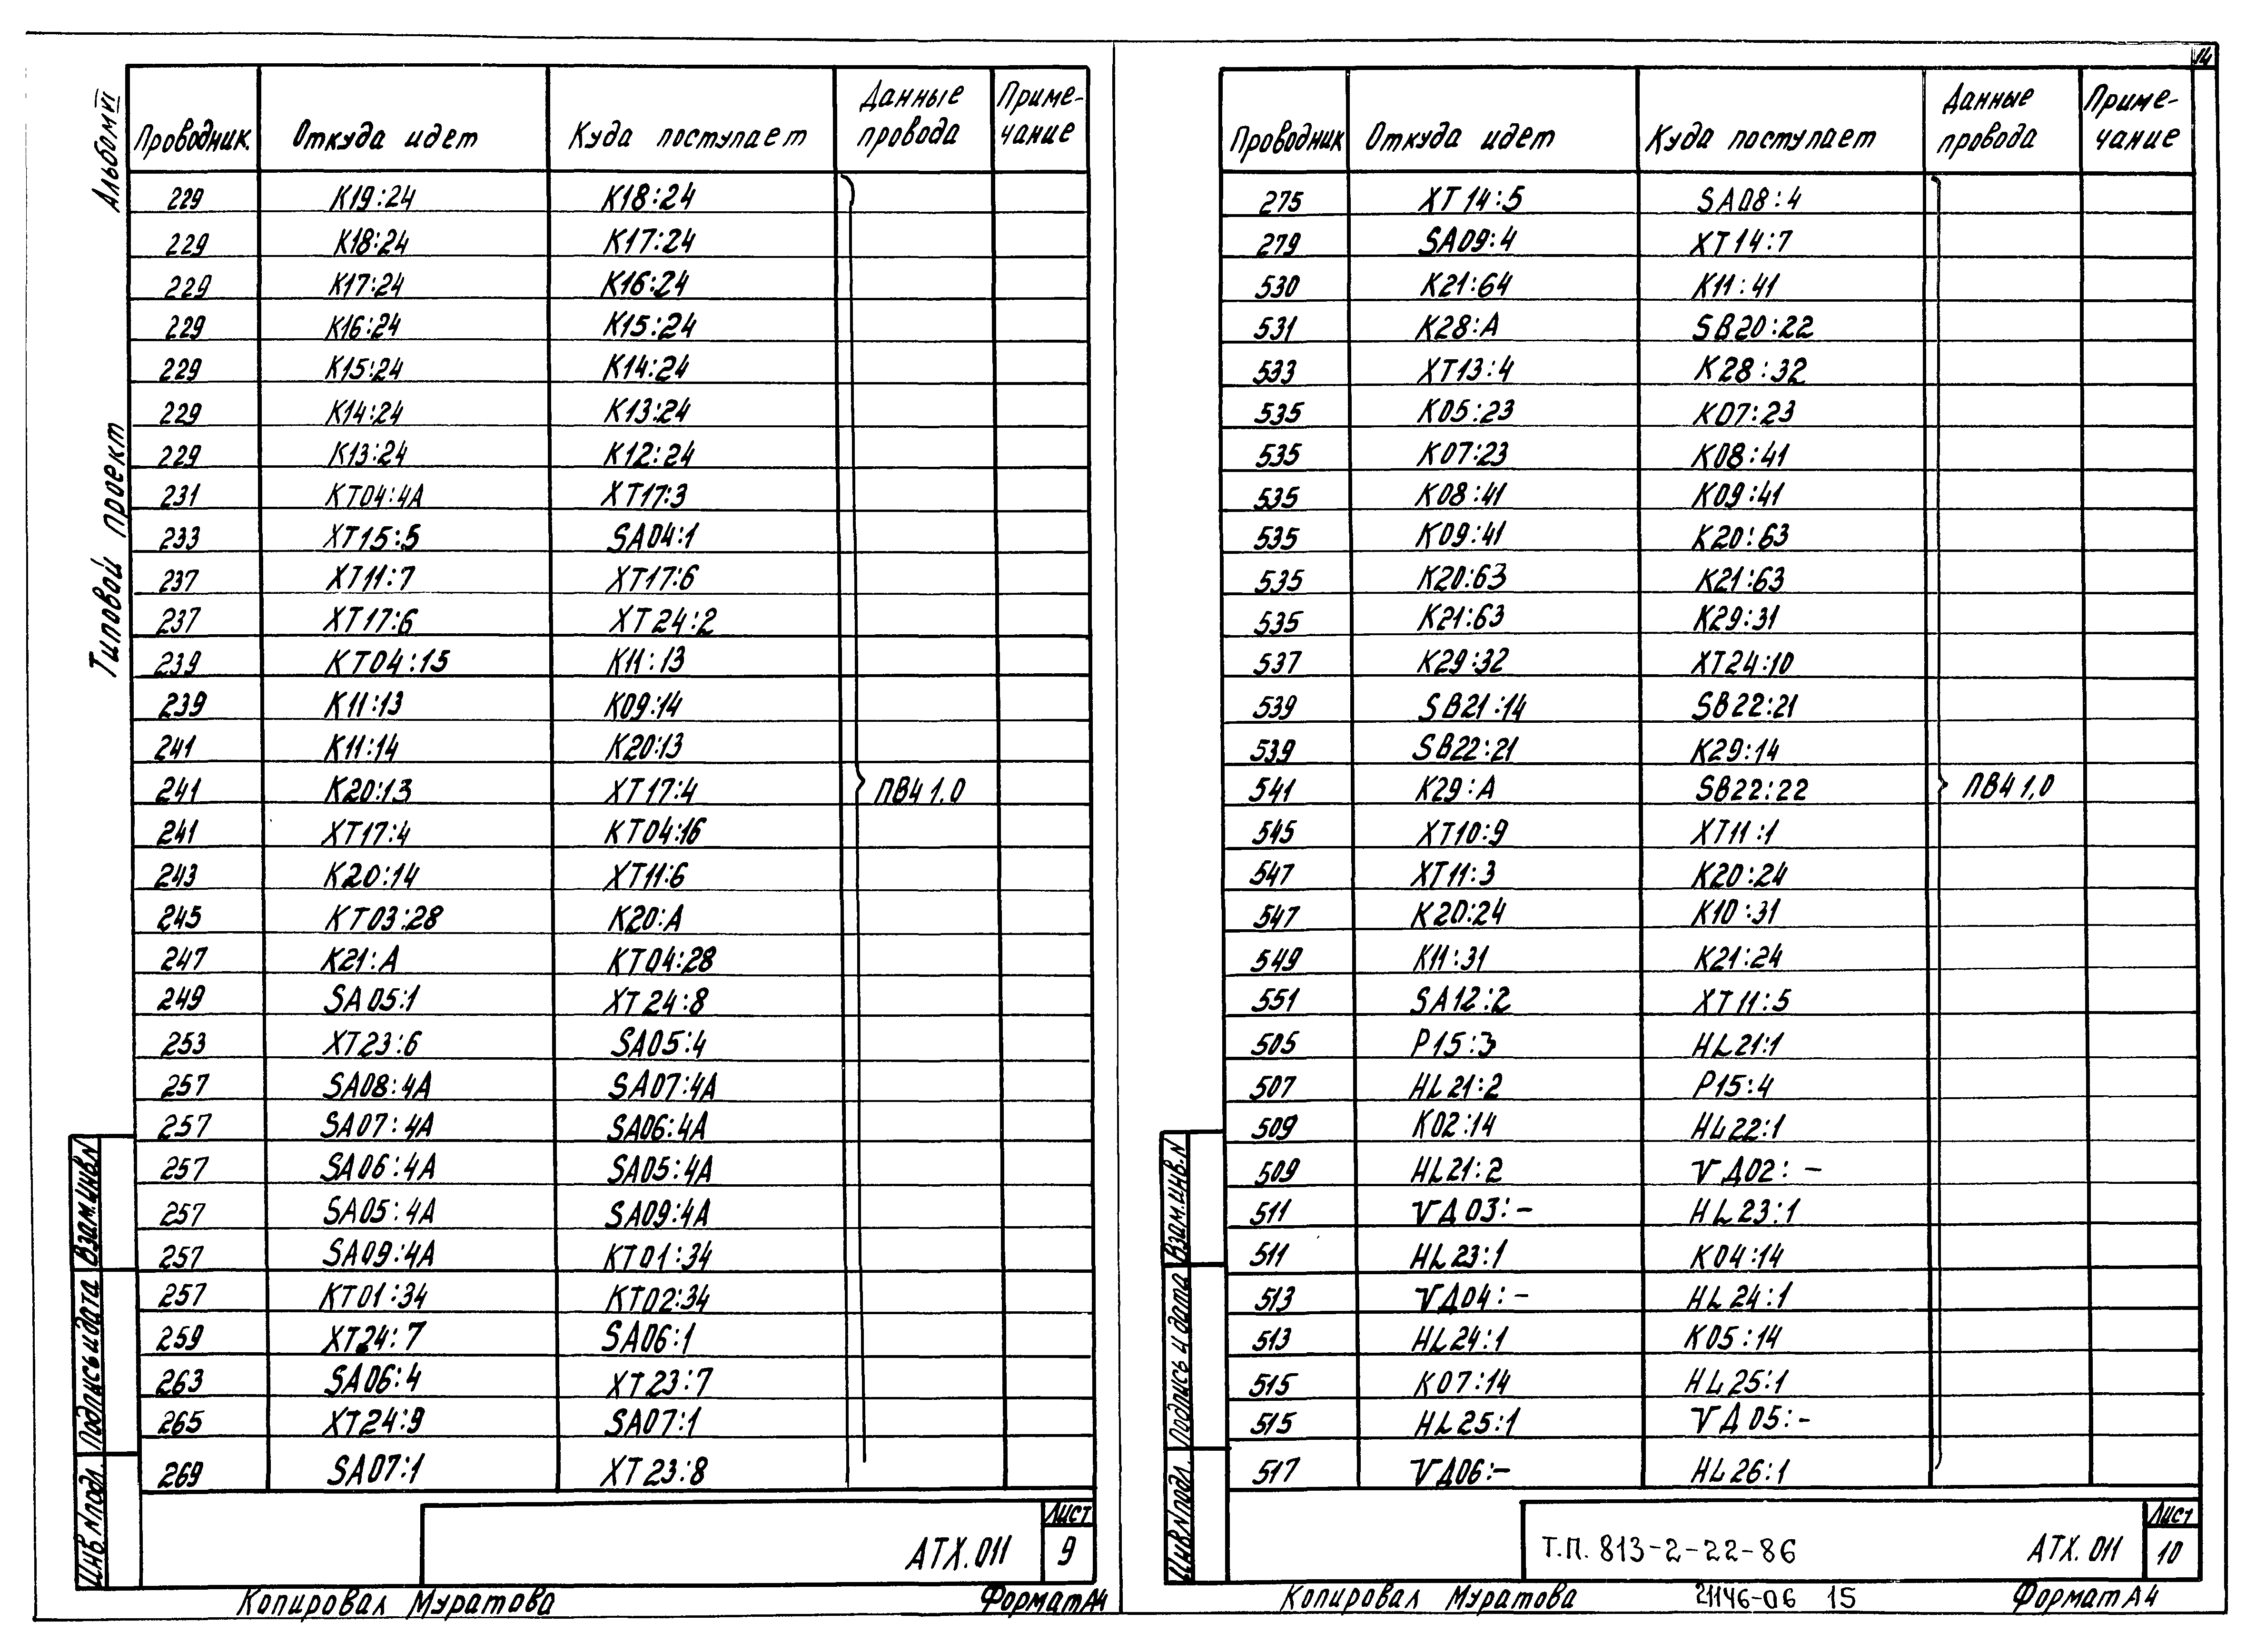 14
Альбом VI
Типовой проект
Проводник Откуда идет Куда поступает Данные провода Приме-чание
229 К19:24 К18:24
229 К18:24 К17:24
229 К17:24 К16:24
229 К16:24 К15:24
229 К15:24 К14:24
229 К14:24 К13:24
229 К13:24 К12:24
231 КТ04:4А ХТ17:3
233 ХТ15:5 SA04:1
237 ХТ11:7 ХТ17:6
237 ХТ17:6 ХТ24:2
239 КТ04:15 К11:13
239 К11:13 К09:14
241 К11:14 К20:13
241 К20:13 ХТ17:4 ПВ4 1,0
241 ХТ17:4 КТ04:16
243 К20:14 ХТ11:6
245 КТ03:28 К20:А
247 К21:А КТ04:28
249 SA05:1 ХТ24:8
253 ХТ23:6 SA05:4
257 SA08:4А SA07:4А
257 SA07:4А SA06:4А
257 SA06:4А SA05:4А
257 SA05:4А SA09:4А
257 SA09:4А КТ01:34
257 КТ01:34 КТ02:34
259 ХТ24:7 SA06:1
263 SA06:4 ХТ23:7
265 ХТ24:9 SA07:1
269 SA07:1 ХТ23:8
Инв.N подл. Подпись и дата Взам.инв.N
АТХ.011 Лист 9
Копировал Муратова Формат А4
Проводник Откуда идет Куда поступает Данные провода Приме-чание
275 ХТ14:5 SA08:4
279 SA09:4 ХТ14:7
530 К21:64 К11:41
531 К28:А SB20:22
533 ХТ13:4 К28:32
535 К05:23 К07:23
535 К07:23 К08:41
535 К08:41 К09:41
535 К09:41 К20:63
535 К20:63 К21:63
535 К21:63 К29:31
537 К29:32 ХТ24:10
539 SB21:14 SB22:21
539 SB22:21 К29:14
541 К29:А SB22:22 ПВ4 1,0
545 ХТ10:9 ХТ11:1
547 ХТ11:3 К20:24
547 К20:24 К10:31
549 К11:31 К21:24
551 SA12:2 ХТ11:5
505 Р15:3 HL21:1
507 HL21:2 Р15:4
509 К02:14 HL22:1
509 HL21:2 VД02:-
511 VД03:- HL23:1
511 HL23:1 К04:14
513 VД04:- HL24:1
513 HL24:1 К05:14
515 К07:14 HL25:1
515 HL25:1 VД05:-
517 VД06:- HL26:1
Инв.N подл. Подпись и дата Взам.инв.N
Т.П. 813-2-22-86 АТХ.011 Лист 10
Копировал Муратова 21146-06 15 Формат А4